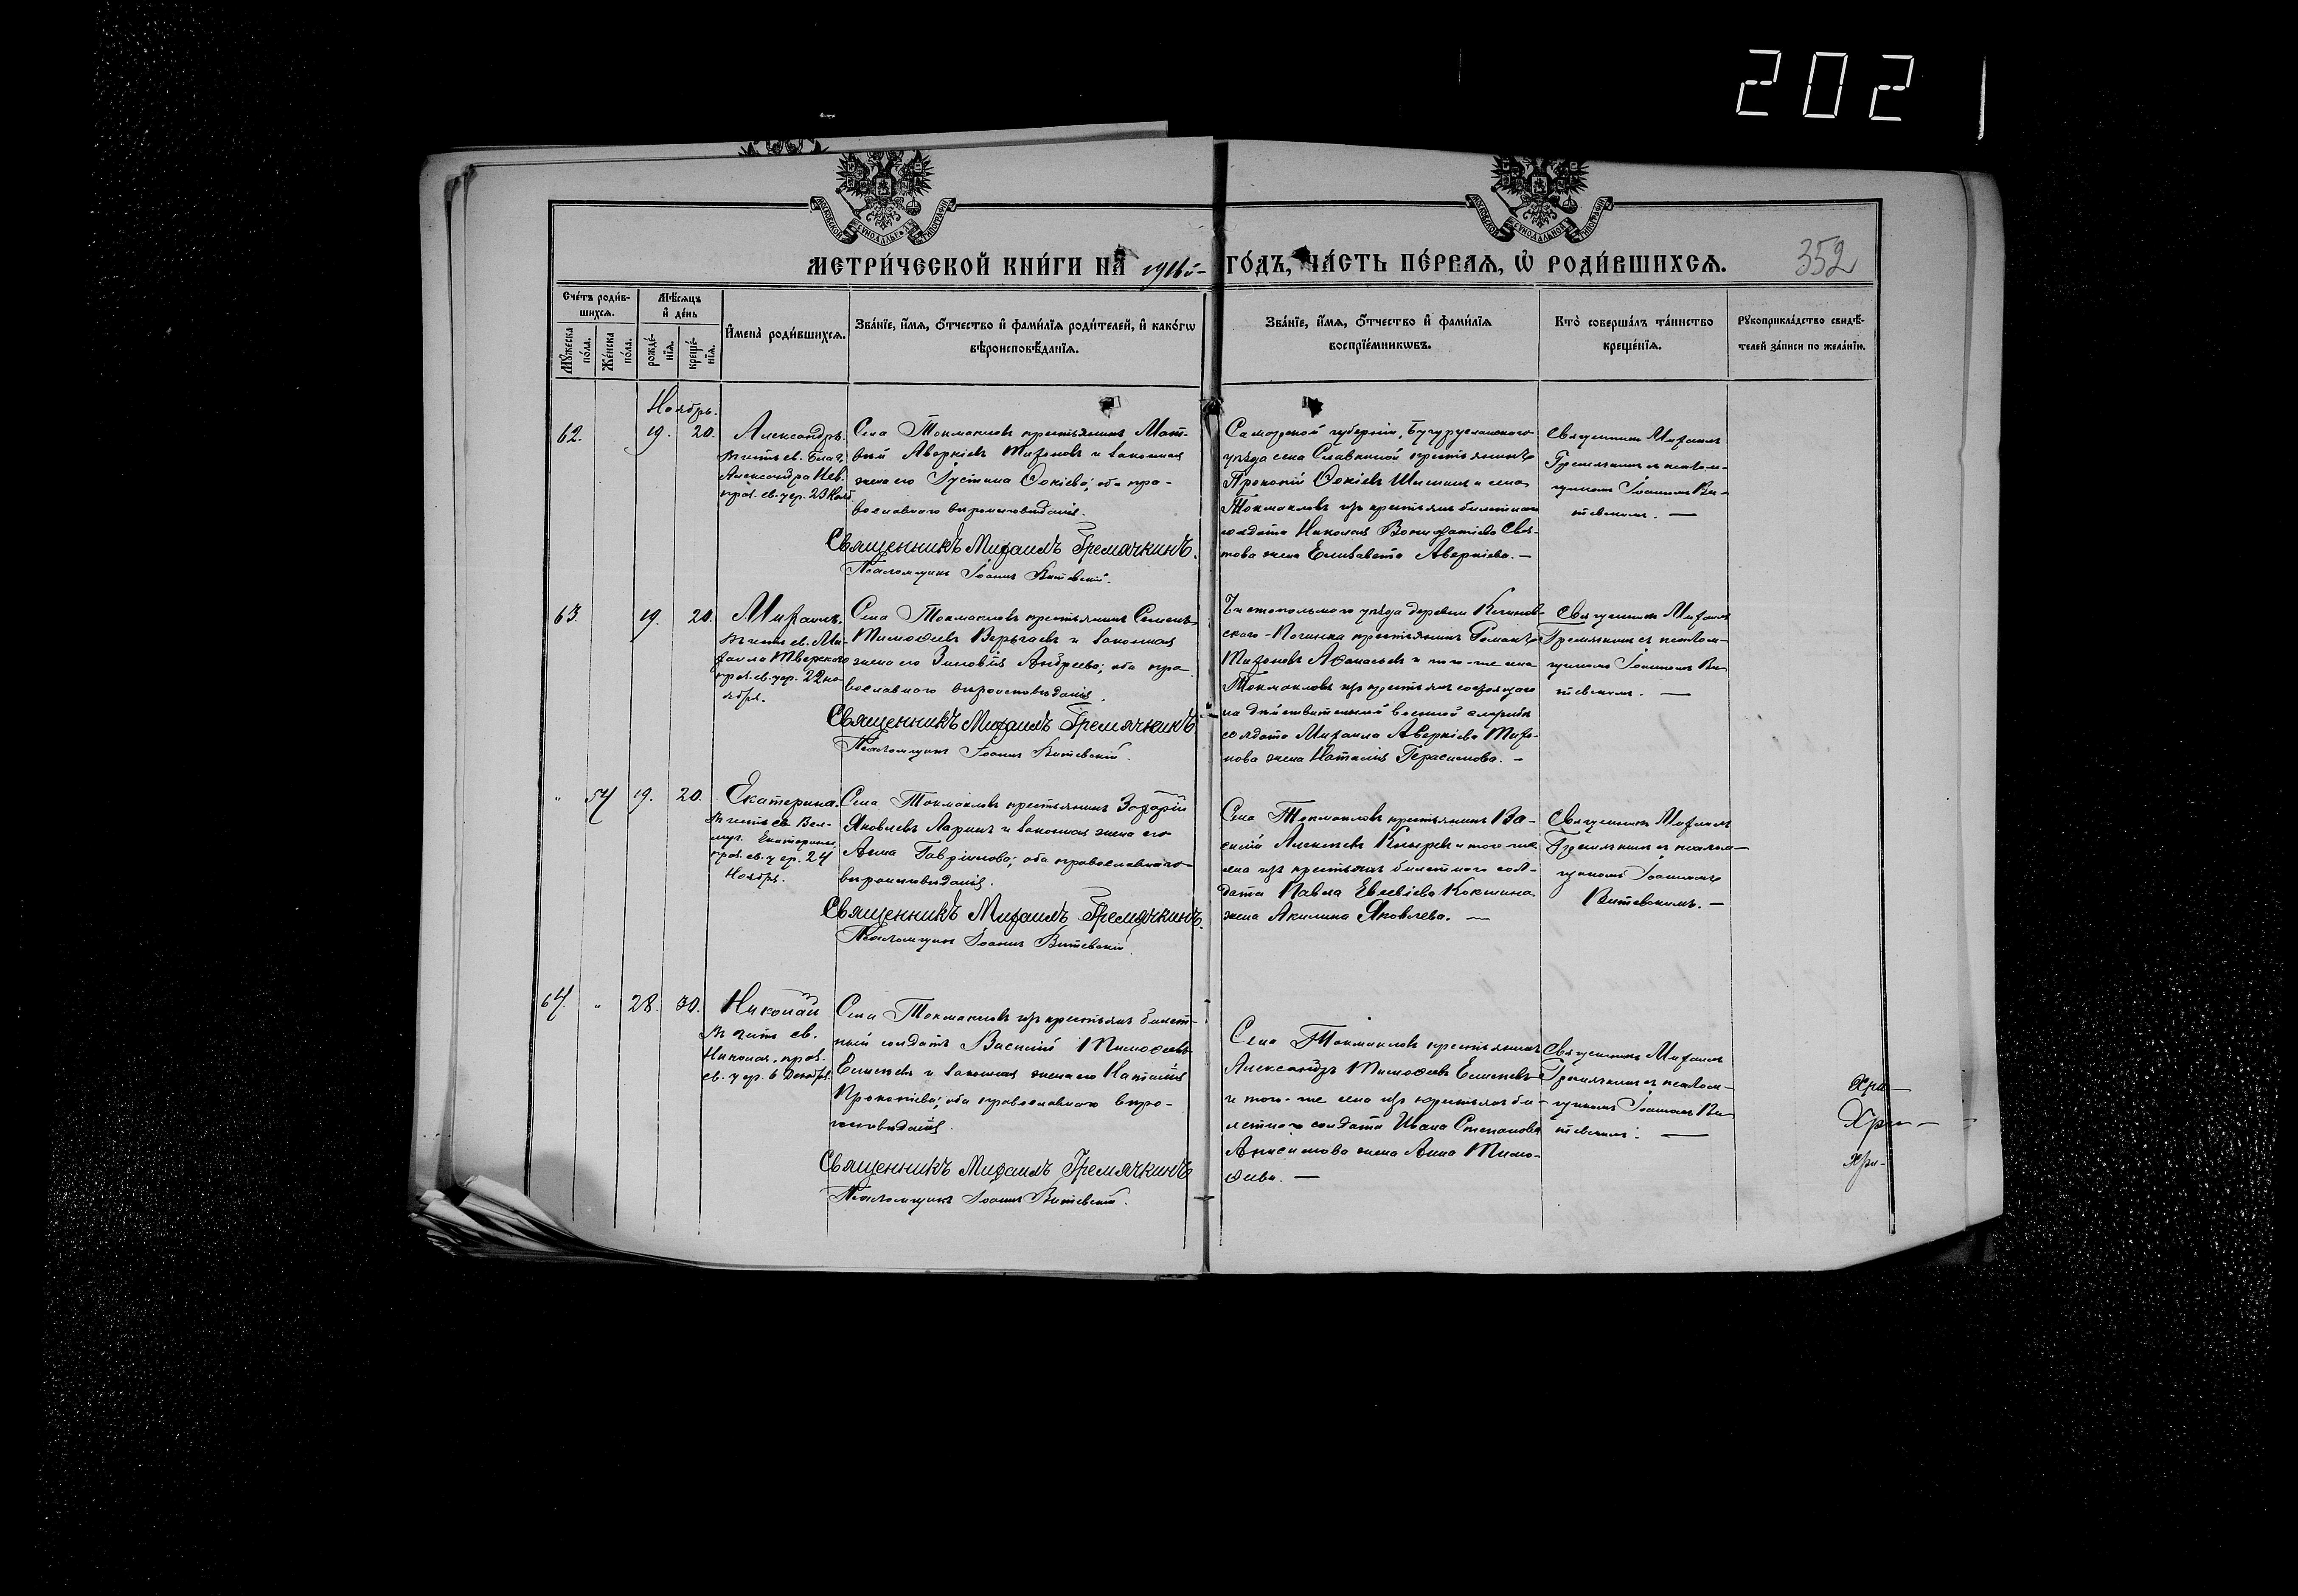 202
МЕТРИ́ЧЕСКОЙ КНИ́ГИ НА 1916й ГО́ДЪ, ЧА́СТЬ ПЕ́РВАЯ, Ѡ РОДИ́ВШИХСЯ.
352
Сче́тъ роди́в-
шихся.
Мѣ́сяцъ
и҆ де́нь
Мꙋ́жеска
по́ла.
Же́нска
по́ла.
рожде́-
нїя.
креще́-
нїя.
И҆мена̀ роди́вшихся.
Зва́нїе, и҆́мя, о҆́тчество и҆ фами́лїя роди́телей, и҆ како́гѡ
вѣроисповѣ́данїя.
Зва́нїе, и҆́мя, о҆́тчество и҆ фами́лїя
воспрїе́мникѡвъ.
Кто̀ соверша́лъ та́инство
креще́нїя.
Рꙋкоприкла́дство свидѣ́-
телей за́писи по жела́нїю.
Ноябрь.
62.
19.
20.
Александръ.
Въ честь св. Благ.
Александра Нев.
праз. св. цер. 23 Нояб.
Села Токмаклов крестьянинъ Мат-
вѣй Аверкіевъ Тихоновъ и законная
жена его Іустина Ѳокіева; оба пра-
вославнаго вѣроисповѣданія.
Священникъ Михаилъ Гремячкинъ.
Псаломщикъ Іоаннъ Витевскій.
Самарской губерніи, Бугурусланскаго
уѣзда села Славкиной крестьянинъ
Прокопій Ѳокіевъ Шишинъ и села
Токмаклов изъ крестьянъ билетнаго
солдата Николая Вонифатіева Свѣ-
това жена Елизавета Аверкіева. —
Священникъ Михаилъ
Гремячкинъ съ псалом-
щикомъ Іоанномъ Ви-
тевскимъ. —
63.
19.
20.
Михаилъ.
Въ честь св. Ми-
хаила Тверского
праз. св. цер. 22 но-
ября.
Села Токмаклов крестьянинъ Семенъ
Тимоѳеевъ Верычаевъ и законная
жена его Зиновія Андреева; оба пра-
вославнаго вѣроисповѣданія.
Священникъ Михаилъ Гремячкинъ
Псаломщикъ Іоаннъ Витевскій.
Чистопольскаго уѣзда деревни
скаго-Починка крестьянинъ Романъ
Тихоновъ Аѳанасьевъ и того-же села
Токмаклов изъ крестьянъ состоящаго
на дѣйствительной военной службѣ
солдата Михаила Аверкіева Тихо-
нова жена Наталія Герасимова. —
Священникъ Михаилъ
Гремячкинъ съ псалом-
щикомъ Іоанномъ Ви-
тевскимъ. —
"
54
19.
20.
Екатерина.
Въ честь св. Вел-
муч. Екатерины,
праз. св. цер. 24
Ноября.
Села Токмаклов крестьянинъ Захарій
Яковлевъ Ларинъ и законная жена его
Анна Гавріилова; оба православнаго
вѣроисповѣданія.
Священникъ Михаилъ Гремячкинъ.
Псаломщикъ Іоаннъ Витевскій.
Села Токмаклов крестьянинъ Ва-
силій Алексѣевъ и того же
села изъ крестьянъ билетнаго сол-
дата Павла Евсевіева Кокшина
жена Акилина Яковлева. —
Священникъ Михаилъ
Гремячкинъ съ псалом-
щикомъ Іоанномъ
Витевскимъ. —
64.
"
28.
30.
Николай
Въ честь св.
Николая, праз.
св. цер. 6 Декабря.
Села Токмаклов изъ крестьянъ билет-
ный солдатъ Василій Тимоѳеевъ
Елисеевъ и законная жена его Наталія
Прокопіева; оба православнаго вѣро-
исповѣданія.
Священникъ Михаилъ Гремячкинъ
Псаломщикъ Іоаннъ Витевскій.
Села Токмаклов крестьянинъ
Александръ Тимоѳеевъ Елисеевъ
и того-же села изъ крестьянъ би-
летнаго солдата Ивана Степанова
Анисимова жена Анна Тимо-
ѳеева. —
Священникъ Михаилъ
Гремячкинъ съ псалом-
щикомъ Іоанномъ Ви-
тевскимъ. —